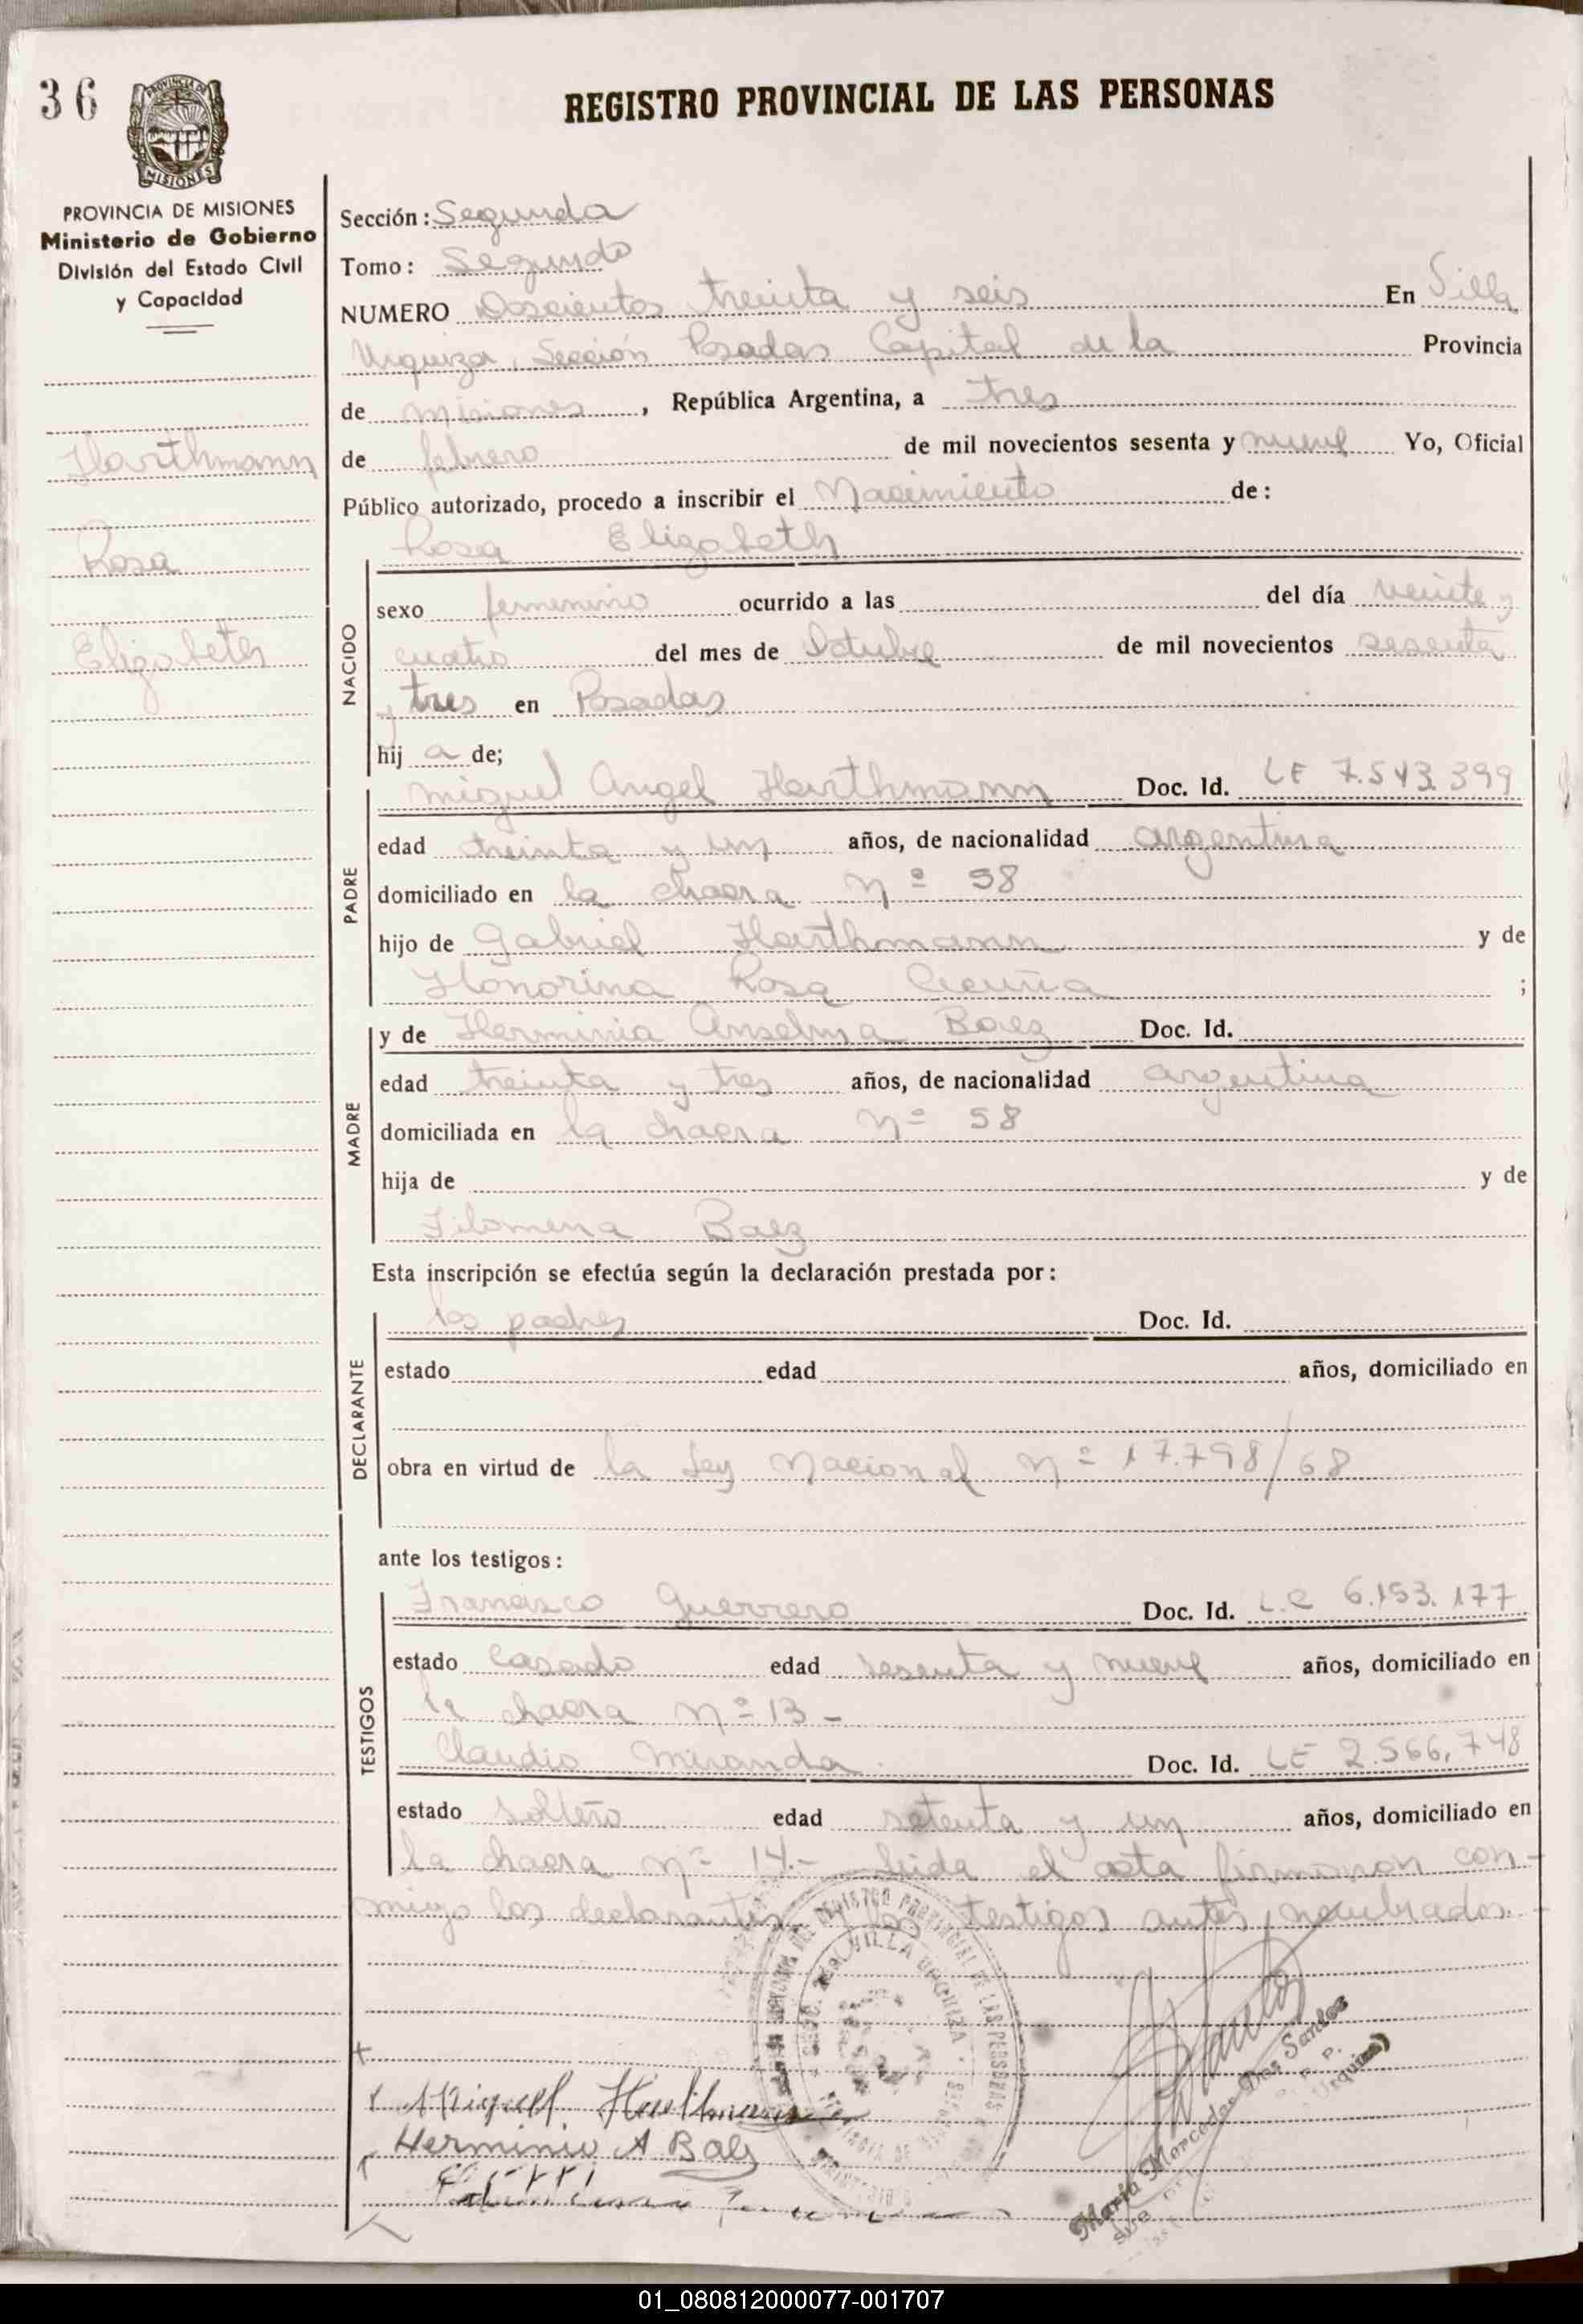 36
REGISTRO PROVINCIAL DE LAS PERSONAS
PROVINCIA DE
MISIONES
PROVINCIA DE MISIONES
Ministerio de Gobierno
División del Estado Civil
y Capacidad
Harthmann
Rosa
Elizabeth
Sección: Segunda
Tomo: Segundo
NUMERO Doscientos treinta y seis En Villa
Urquiza, Sección Posadas Capital de la Provincia
de Misiones, República Argentina, a tres
de febrero de mil novecientos sesenta y nueve Yo, Oficial
Público autorizado, procedo a inscribir el Nacimiento de:
Rosa Elizabeth
NACIDO
sexo femenino ocurrido a las del día veinte y
cuatro del mes de Octubre de mil novecientos sesenta
y tres en Posadas
hij a de;
PADRE
Miguel Angel Harthmann Doc. Id. LE 7.543.399
edad treinta y un años, de nacionalidad argentina
domiciliado en la chacra Nº 58
hijo de Gabriel Harthmann y de
Honorina Rosa Acuña ;
MADRE
y de Herminia Anselma Baez Doc. Id.
edad treinta y tres años, de nacionalidad argentina
domiciliada en la chacra Nº 58
hija de y de
Filomena Baez
Esta inscripción se efectúa según la declaración prestada por:
DECLARANTE
los padres Doc. Id.
estado edad años, domiciliado en
obra en virtud de la Ley Nacional Nº 17.798/68
ante los testigos:
TESTIGOS
Francisco Guerrero Doc. Id. 6.153.177
estado Casado edad sesenta y nueve años, domiciliado en
la chacra nº 13 -
Claudio Miranda Doc. Id. LE 2.566.748
estado soltero edad setenta y un años, domiciliado en
la chacra nº 14.- Leida el acta firmaron con-
migo los declarantes y los testigos antes nombrados.-
REGISTRO PROVINCIAL DE LAS PERSONAS
VILLA URQUIZA
Miguel Harthmann
Herminia A Baez
Maria Mercedes Dos Santos
Urquiza)
01_080812000077-001707